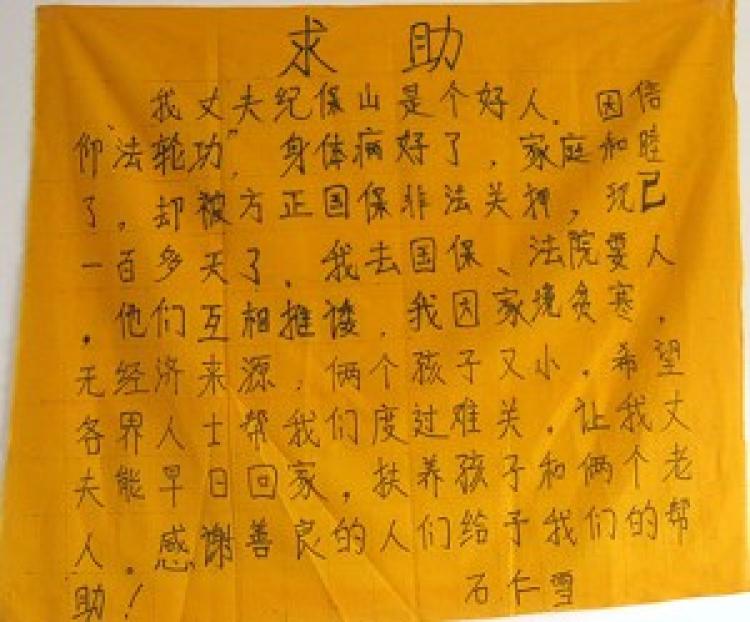 求助
我丈夫纪保山是个好人．因信
仰“法轮功”，身体病好了，家庭和睦
了，却被方正国保非法关押，现已
一百多天了、我去国保、法院要人
，他们互相推诿．我因家境贫寒，
无经济来源，俩个孩子又小．希望
各界人士帮我们度过难关．让我丈
夫能早日回家，扶养孩子和俩个老
人。感谢善良的人们给予我们的帮
助！ 石仁雪